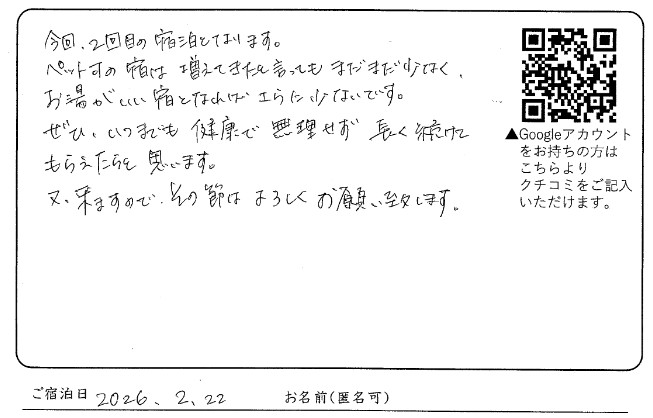 今回、2回目の宿泊となります。
ペット可の宿は増えてきたと言ってもまだまだ少なく、
お湯がいい宿となればさらに少ないです。
ぜひ、いつまでも健康で無理せず長く続けて
もらえたらと思います。
又、来ますので、その節はよろしくお願い致します。
▲Googleアカウント
をお持ちの方は
こちらより
クチコミをご記入
いただけます。
ご宿泊日 2026. 2. 22 お名前(匿名可)